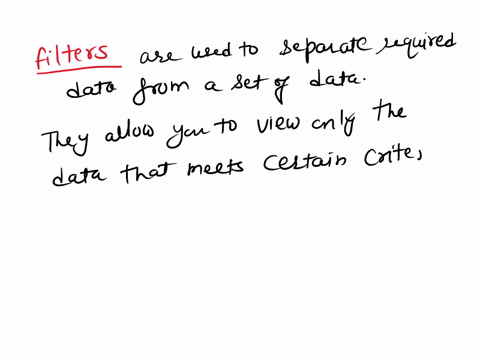 filters are used to separate required
data from a set of data.
They allow you to view only the
data that meets certain crite,